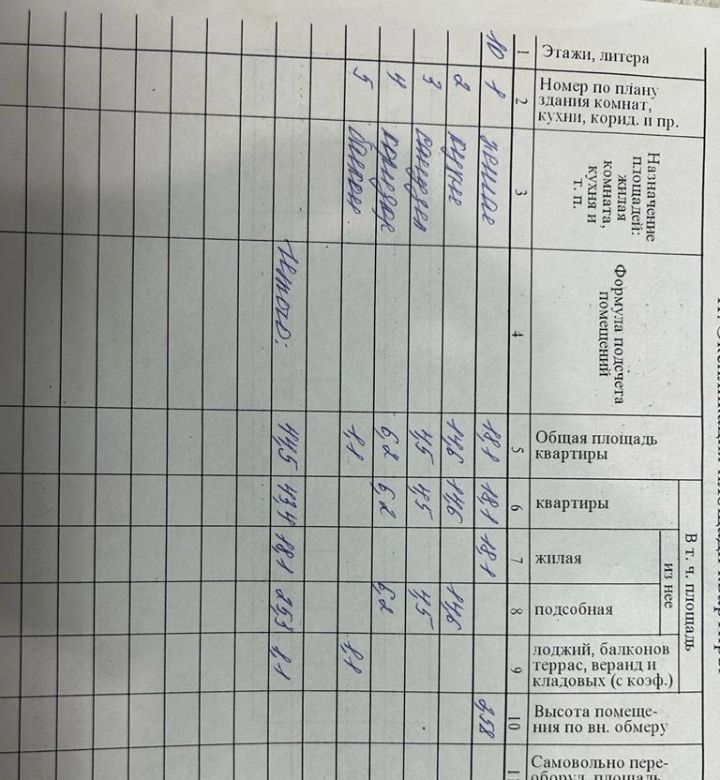 Этажи, литера
Номер по плану
здания комнат,
кухни, корид. и пр.
Назначение
площадей:
жилая
комната,
кухня и
т. п.
Формула подсчета
помещений
Общая площадь
квартиры
В т. ч. площадь
квартиры
из нее
жилая
подсобная
лоджий, балконов
террас, веранд и
кладовых (с коэф.)
Высота помеще-
ния по вн. обмеру
Самовольно пере-
1 2 3 4 5 6 7 8 9 10
10 1 жилая 18,1 18,1 18,1 2,58
2 кухня 14,6 14,6 14,6
3 санузел 4,5 4,5 4,5
4 коридор 6,2 6,2 6,2
5 балкон 1,1 1,1
Итого: 44,5 43,4 18,1 25,3 1,1